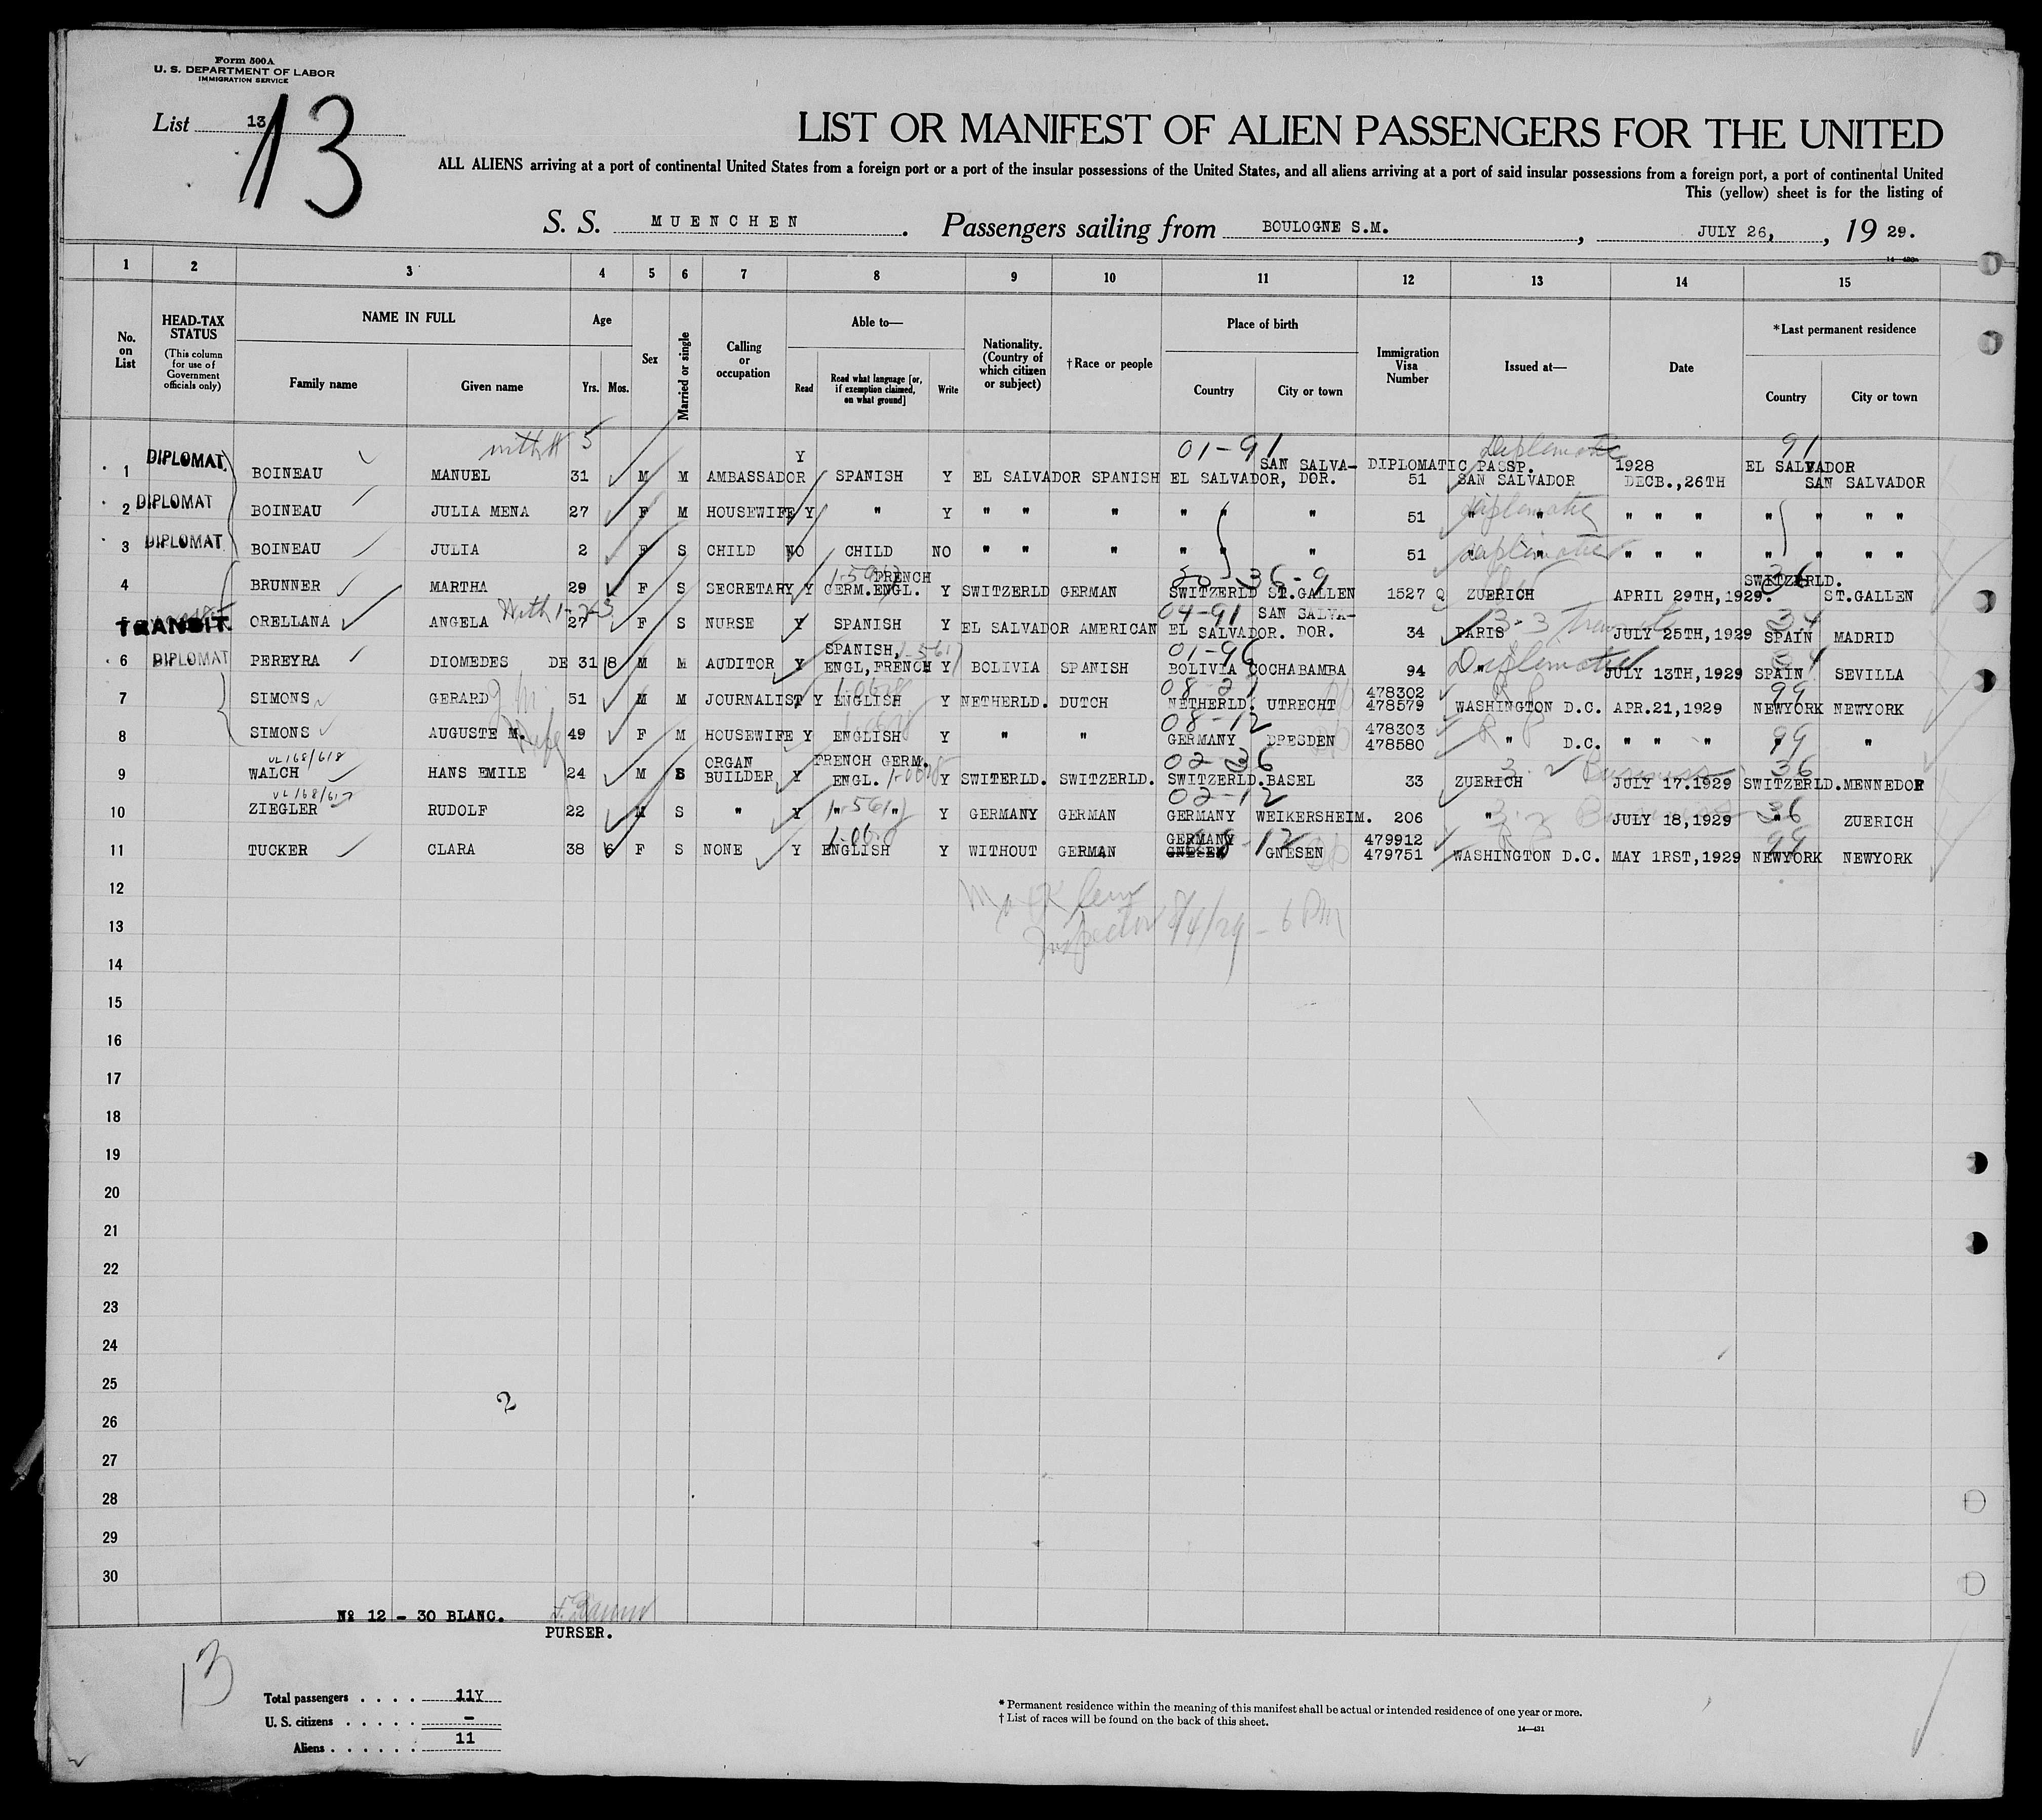 Form 500A
U. S. DEPARTMENT OF LABOR
IMMIGRATION SERVICE
List 13
13
LIST OR MANIFEST OF ALIEN PASSENGERS FOR THE UNITED
ALL ALIENS arriving at a port of continental United States from a foreign port or a port of the insular possessions of the United States, and all aliens arriving at a port of said insular possessions from a foreign port, a port of continental United
This (yellow) sheet is for the listing of
S. S. MUENCHEN. Passengers sailing from BOULOGNE S.M., JULY 26, , 19 29.
1 2 3 4 5 6 7 8 9 10 11 12 13 14 15
No. on List
HEAD-TAX STATUS (This column for use of Government officials only)
NAME IN FULL
Family name Given name
Age
Yrs. Mos.
Sex
Married or single
Calling or occupation
Able to—
Read
Read what language [or, if exemption claimed, on what ground]
Write
Nationality. (Country of which citizen or subject)
† Race or people
Place of birth
Country City or town
Immigration Visa Number
Issued at—
Date
*Last permanent residence
Country City or town
with # 5 01-91 Diplomatic 91
1 DIPLOMAT BOINEAU MANUEL 31 M M AMBASSADOR Y SPANISH Y EL SALVADOR SPANISH EL SALVADOR, SAN SALVA-DOR. DIPLOMATIC PASSP. 51 SAN SALVADOR 1928 DECB.,26TH EL SALVADOR SAN SALVADOR
2 DIPLOMAT BOINEAU JULIA MENA 27 F M HOUSEWIFE Y " Y " " " " " " 51 " " diplomatic " " " " " " "
3 DIPLOMAT BOINEAU JULIA 2 F S CHILD NO CHILD NO " " " " " " 51 " " diplomatic " " " " " " "
4 BRUNNER MARTHA 29 F S SECRETARY Y FRENCH GERM.ENGL. Y SWITZERLD GERMAN SWITZERLD ST.GALLEN 1527 Q ZUERICH APRIL 29TH,1929. SWITZERLD. ST.GALLEN
With 1-2-3 04-91 3-3 Transit 34
TRANSIT. ORELLANA ANGELA 27 F S NURSE Y SPANISH Y EL SALVADOR AMERICAN EL SALVADOR. SAN SALVA-DOR. 34 PARIS JULY 25TH,1929 SPAIN MADRID
01-96 Diplomatic
6 DIPLOMAT PEREYRA DIOMEDES DE 31 8 M M AUDITOR Y SPANISH, ENGL,FRENCH Y BOLIVIA SPANISH BOLIVIA COCHABAMBA 94 " JULY 13TH,1929 SPAIN SEVILLA
7 SIMONS GERARD 51 M M JOURNALIST Y ENGLISH Y NETHERLD. DUTCH NETHERLD. UTRECHT 478302 478579 WASHINGTON D.C. APR.21,1929 NEWYORK NEWYORK
08-12 99
8 SIMONS AUGUSTE M. 49 F M HOUSEWIFE Y ENGLISH Y " " GERMANY DRESDEN 478303 478580 " D.C. " " " " "
VL 168/618 02-36 36
9 WALCH HANS EMILE 24 M S ORGAN BUILDER Y FRENCH GERM. ENGL. Y SWITERLD. SWITZERLD. SWITZERLD. BASEL 33 ZUERICH JULY 17.1929 SWITZERLD. MENNEDOF
VL 168/617 02-12 36
10 ZIEGLER RUDOLF 22 M S " Y " " Y GERMANY GERMAN GERMANY WEIKERSHEIM. 206 " JULY 18,1929 " ZUERICH
11 TUCKER CLARA 38 6 F S NONE Y ENGLISH Y WITHOUT GERMAN GERMANY GNESEN GNESEN 479912 479751 WASHINGTON D.C. MAY 1RST,1929 NEWYORK NEWYORK
12
Inspector 8/4/29 - 6 PM
13
14
15
16
17
18
19
20
21
22
23
24
25
2
26
27
28
29
30
№ 12 - 30 BLANC.
PURSER.
13
Total passengers . . . . 11Y
U. S. citizens . . . . . -
Aliens . . . . . . 11
* Permanent residence within the meaning of this manifest shall be actual or intended residence of one year or more.
† List of races will be found on the back of this sheet.
14—431